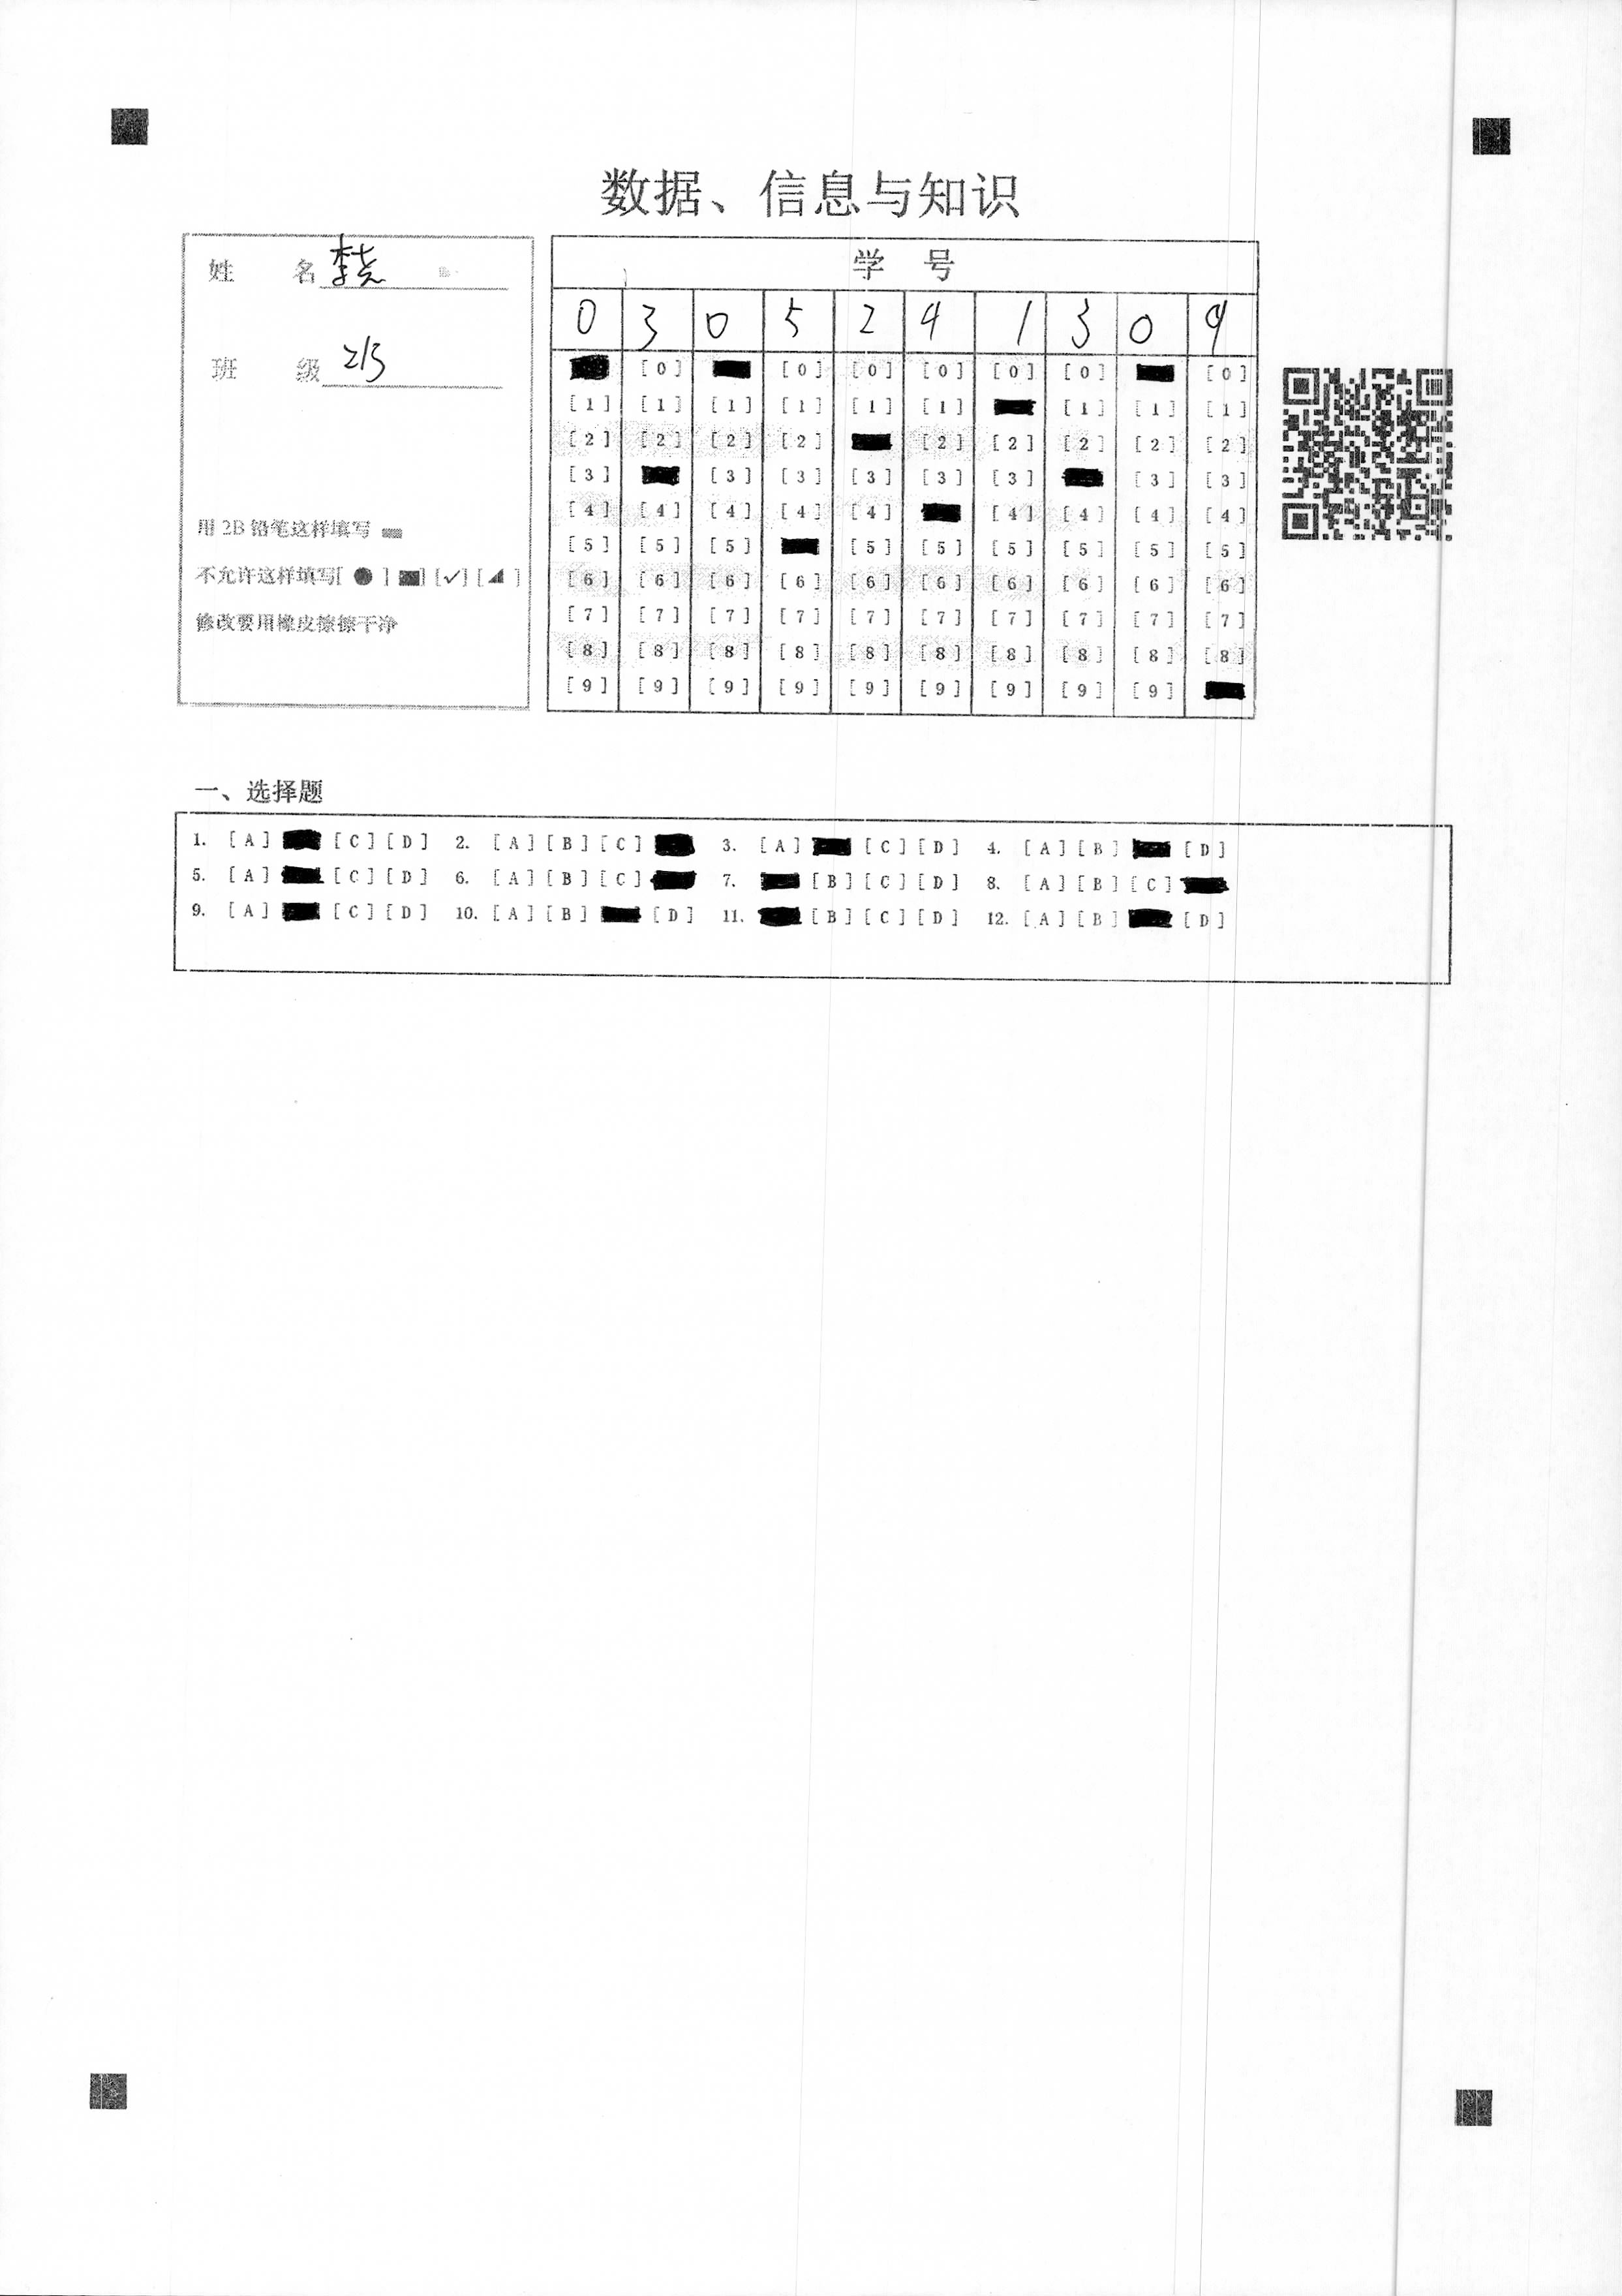 数据、信息与知识
姓 名 李尧
班 级 213
用 2B 铅笔这样填写
不允许这样填写[ ● ] ■] [✓] [◢ ]
修改要用橡皮擦擦干净
学 号
0 3 0 5 2 4 1 3 0 9
[0] [0] [0] [0] [0] [0] [0]
[1] [1] [1] [1] [1] [1] [1] [1] [1]
[2] [2] [2] [2] [2] [2] [2] [2] [2]
[3] [3] [3] [3] [3] [3] [3] [3]
[4] [4] [4] [4] [4] [4] [4] [4] [4]
[5] [5] [5] [5] [5] [5] [5] [5] [5]
[6] [6] [6] [6] [6] [6] [6] [6] [6] [6]
[7] [7] [7] [7] [7] [7] [7] [7] [7] [7]
[8] [8] [8] [8] [8] [8] [8] [8] [8] [8]
[9] [9] [9] [9] [9] [9] [9] [9] [9]
一、选择题
1. [A] [C] [D] 2. [A] [B] [C] 3. [A] [C] [D] 4. [A] [B] [D]
5. [A] [C] [D] 6. [A] [B] [C] 7. [B] [C] [D] 8. [A] [B] [C]
9. [A] [C] [D] 10. [A] [B] [D] 11. [B] [C] [D] 12. [A] [B] [D]